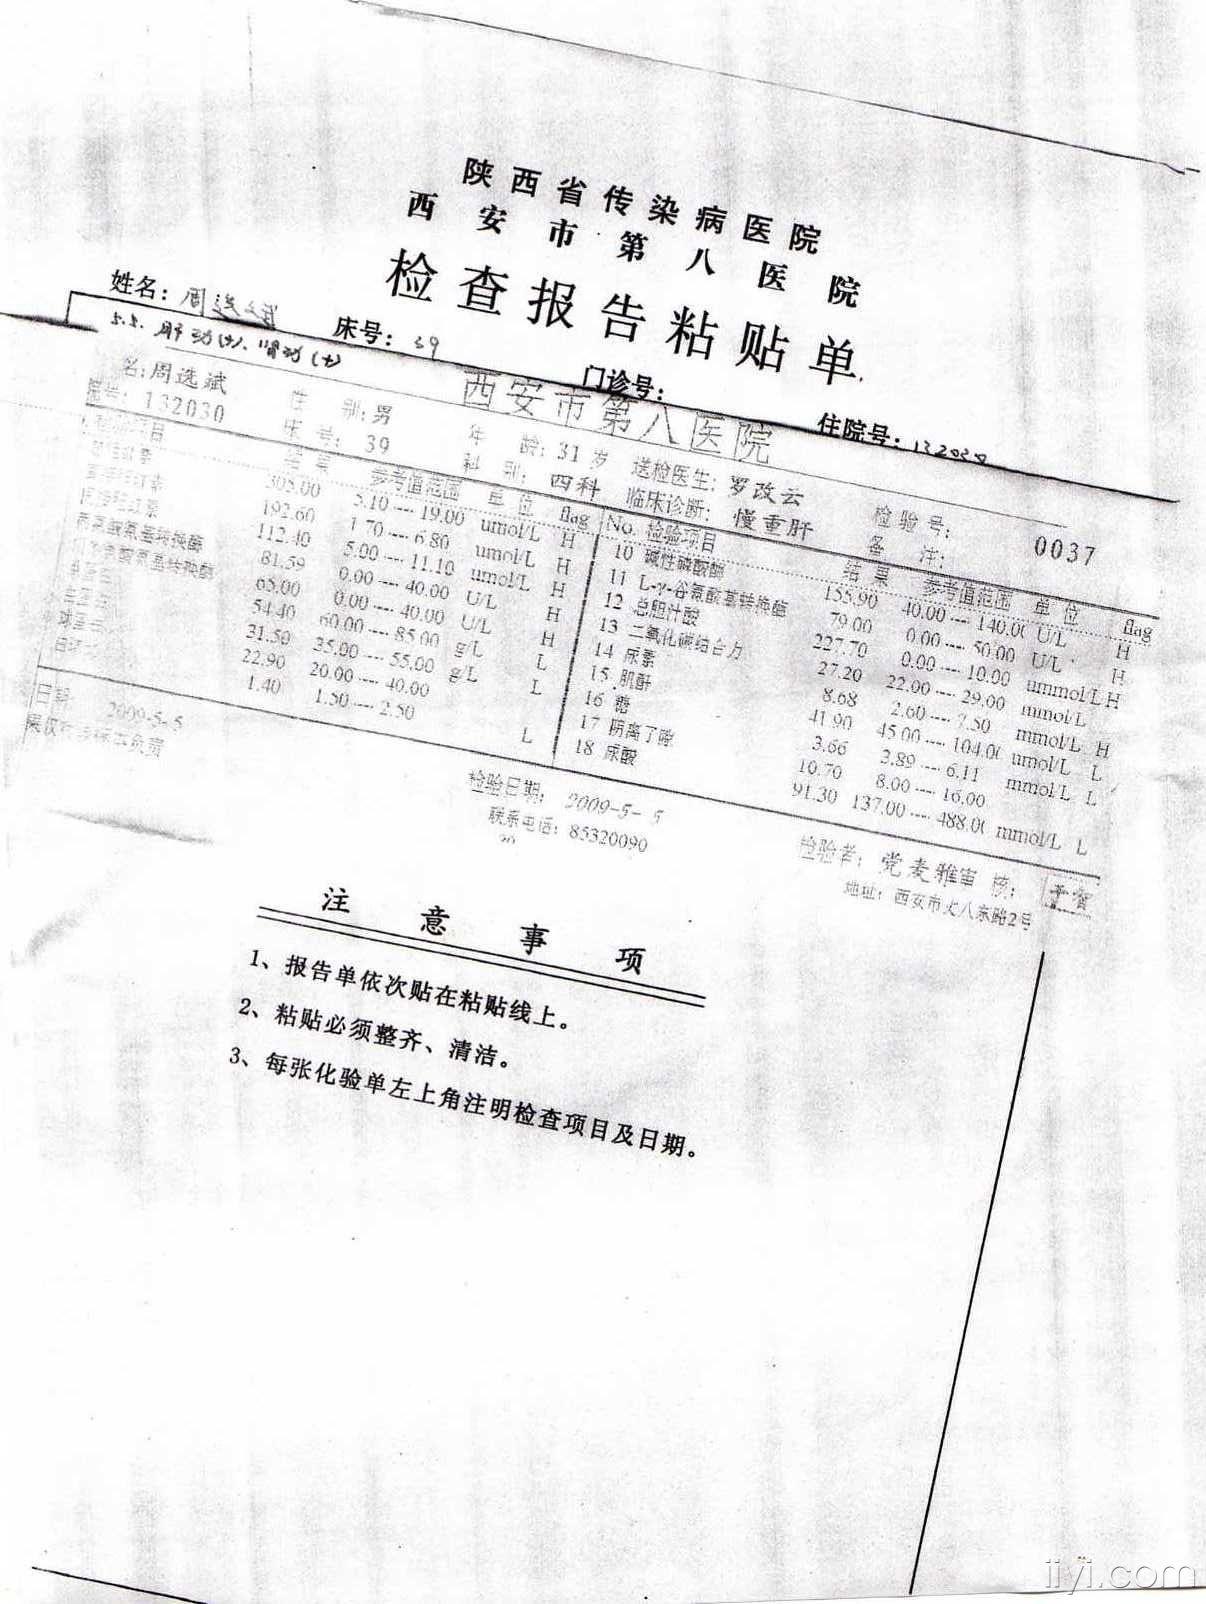 陕西省传染病医院
西安市第八医院
检查报告粘贴单
姓名：周选斌 床号：39 门诊号： 住院号：132030
5.5. 肝功(+)、肾功(+)
西安市第八医院
名：周选斌 性 别：男 年 龄：31 岁 送检医生：罗改云 检验号： 0037
132030 床 号： 39 科 别：四科 临床诊断：慢重肝 备 注：
项目 结 果 参考值范围 单 位 flag No. 检验项目 结 果 参考值范围 单 位 flag
305.00 5.10 --- 19.00 umol/L H 10 碱性磷酸酶 155.90 40.00 --- 140.0( U/L H
192.60 1.70 --- 6.80 umol/L H 11 L-γ-谷氨酸基转换酶 79.00 0.00 --- 50.00 U/L H
112.40 5.00 --- 11.10 umol/L H 12 总胆汁酸 227.70 0.00 --- 10.00 ummol/L H
81.59 0.00 --- 40.00 U/L H 13 二氧化碳结合力 27.20 22.00 --- 29.00 mmol/L
65.00 0.00 --- 40.00 U/L H 14 尿素 8.68 2.60 --- 7.50 mmol/L H
54.40 60.00 --- 85.00 g/L L 15 肌酐 41.90 45.00 --- 104.0( umol/L L
31.50 35.00 --- 55.00 g/L L 16 糖 3.66 3.89 --- 6.11 mmol/L L
22.90 20.00 --- 40.00 17 阴离子隙 10.70 8.00 --- 16.00
1.40 1.50 --- 2.50 L 18 尿酸 91.30 137.00 --- 488.0( mmol/L L
日期： 2009-5-5 检验日期： 2009-5-5 检验者：党麦雅 审 核：
联系电话：85320090 地址：西安市丈八东路2号
注意事项
1、报告单依次贴在粘贴线上。
2、粘贴必须整齐、清洁。
3、每张化验单左上角注明检查项目及日期。
iiyi.com